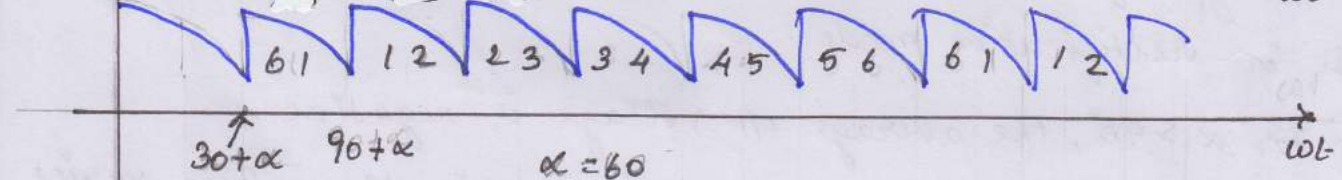 61 12 23 34 45 56 61 12
30+α 90+α α = 60 ωt